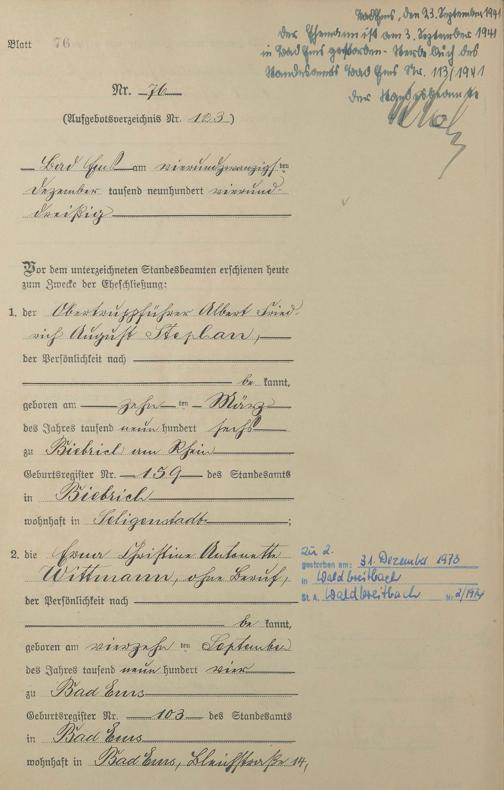 Bad Ems, den 23. September 1941
Der Ehemann ist am 3. September 1941
in Bad Ems gestorben - Sterbebuch des
Standesamts Bad Ems Nr. 113/1941
Der Standesbeamte
Blatt 76
Nr. 76
(Aufgebotsverzeichnis Nr. 103)
Bad Ems am vierundzwanzigsten
Dezember tausend neunhundert vierund-
dreißig
Vor dem unterzeichneten Standesbeamten erschienen heute
zum Zwecke der Eheschließung:
1. der Obertruppführer Albert Fried-
rich August Stephan,
der Persönlichkeit nach
be kannt,
geboren am zehn ten März
des Jahres tausend neun hundert sechs
zu Biebrich am Rhein
Geburtsregister Nr. 159 des Standesamts
in Biebrich
wohnhaft in Seligenstadt ;
2. die Erna Christine Antonette
Wittmann, ohne Beruf,
der Persönlichkeit nach
be kannt,
geboren am vierzehn ten September
des Jahres tausend neun hundert vier
zu Bad Ems
Geburtsregister Nr. 103 des Standesamts
in Bad Ems
wohnhaft in Bad Ems, Bleichstraße 14,
zu 2.
gestorben am: 31. Dezember 1973
in Waldbreitbach
St. A. Waldbreitbach Nr. 2/1974